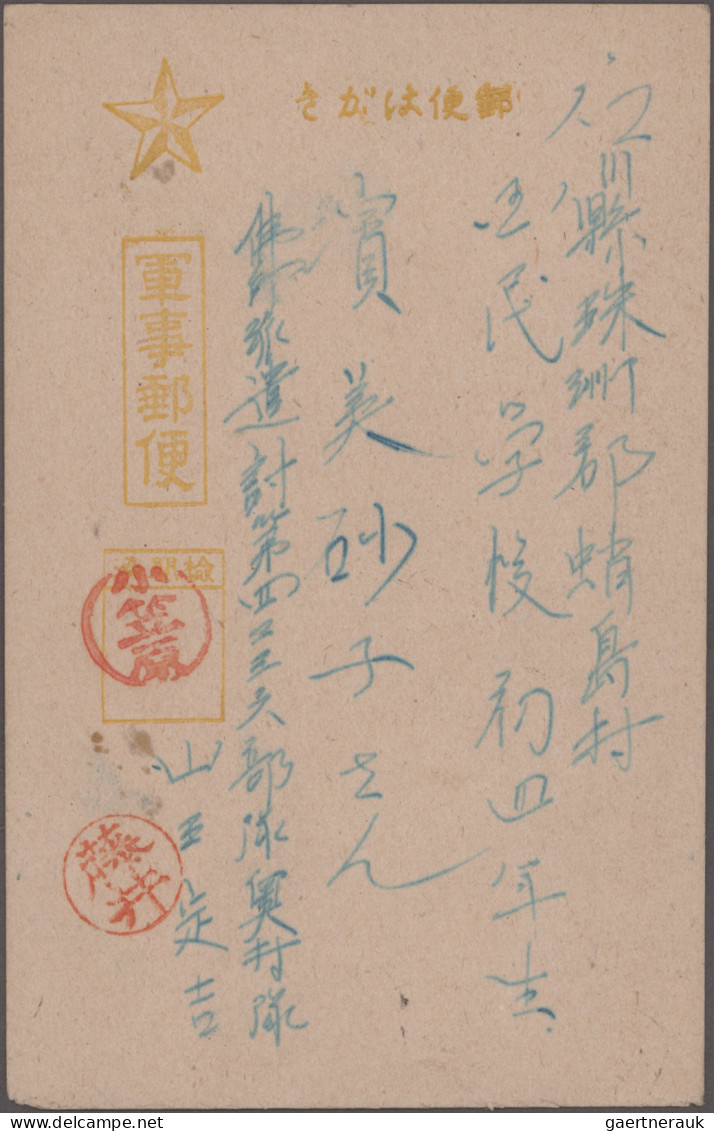 郵便はがき
石川縣珠洲郡蛸島村
国民学校初四年生
濱美砂子さん
佛印派遣討第四二三六部隊奥村隊
山王定吉
軍事郵便
検閲済
小笠原
藤井
gaertnerauk